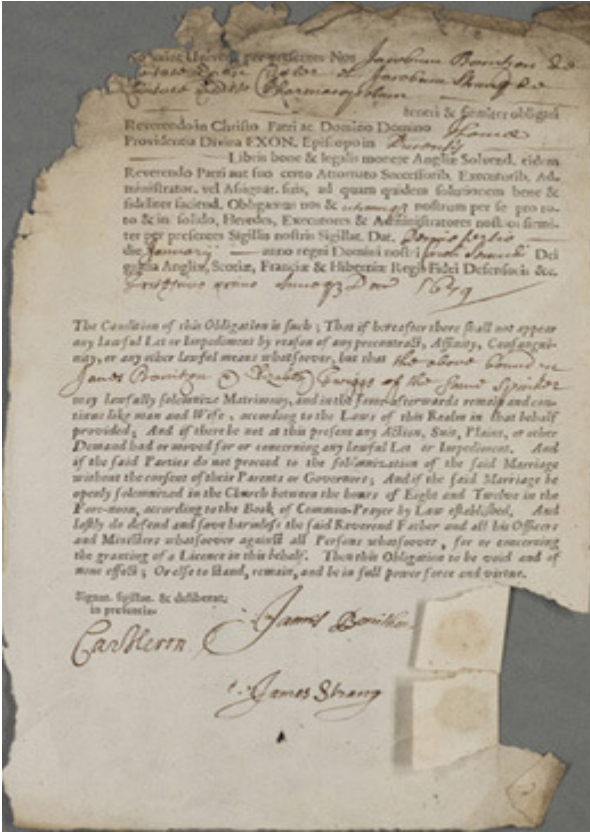 Universi per presentes Nos Jacobum Bonithon de
et Jacobum Strang de
Pharmacopolam
teneri & firmiter obligari
Reverendo in Christo Patri ac Domino Domino Thomæ
Providentia Divina EXON. Episcopo in Ducentis
Libris bone & legalis monete Angliæ Solvend. eidem
Reverendo Patri aut suo certo Attornato Successorib. Executorib. Ad-
ministrator. vel Assignat. suis, ad quam quidem solutionem bene &
fideliter faciend. Obligamus nos & nostrum per se pro to-
to & in solido, Heredes, Executores & Administratores nostros firmi-
ter per presentes Sigillis nostris Sigillat. Dat.
die January anno regni Domini nostri Dei
gratia Angliæ, Scotiæ, Franciæ & Hiberniæ Regis Fidei Defensoris &c.
Dom 16
The Condition of this Obligation is such; That if hereafter there shall not appear
any lawful Let or Impediment by reason of any precontract, Affinity, Consangui-
nity, or any other lawful means whatsoever, but that the above bound in
James Bonithon of the same Spinster
may lawfully solemnize Matrimony, and in the same afterwards remain and con-
tinue like man and Wife, according to the Laws of this Realm in that behalf
provided; And if there be not at this present any Action, Suit, Plaint, or other
Demand had or moved for or concerning any lawful Let or Impediment. And
if the said Parties do not proceed to the solemnization of the said Marriage
without the consent of their Parents or Governors; And if the said Marriage be
openly solemnized in the Church between the hours of Eight and Twelve in the
Fore-noon, according to the Book of Common-Prayer by Law established. And
lastly do defend and save harmless the said Reverend Father and all his Officers
and Ministers whatsoever against all Persons whatsoever, for or concerning
the granting of a Licence in this behalf. Then this Obligation to be void and of
none effect; Or else to stand, remain, and be in full power force and virtue.
Signat. sigillat. & deliberat.
in presentia
James Bonithon
James Strang